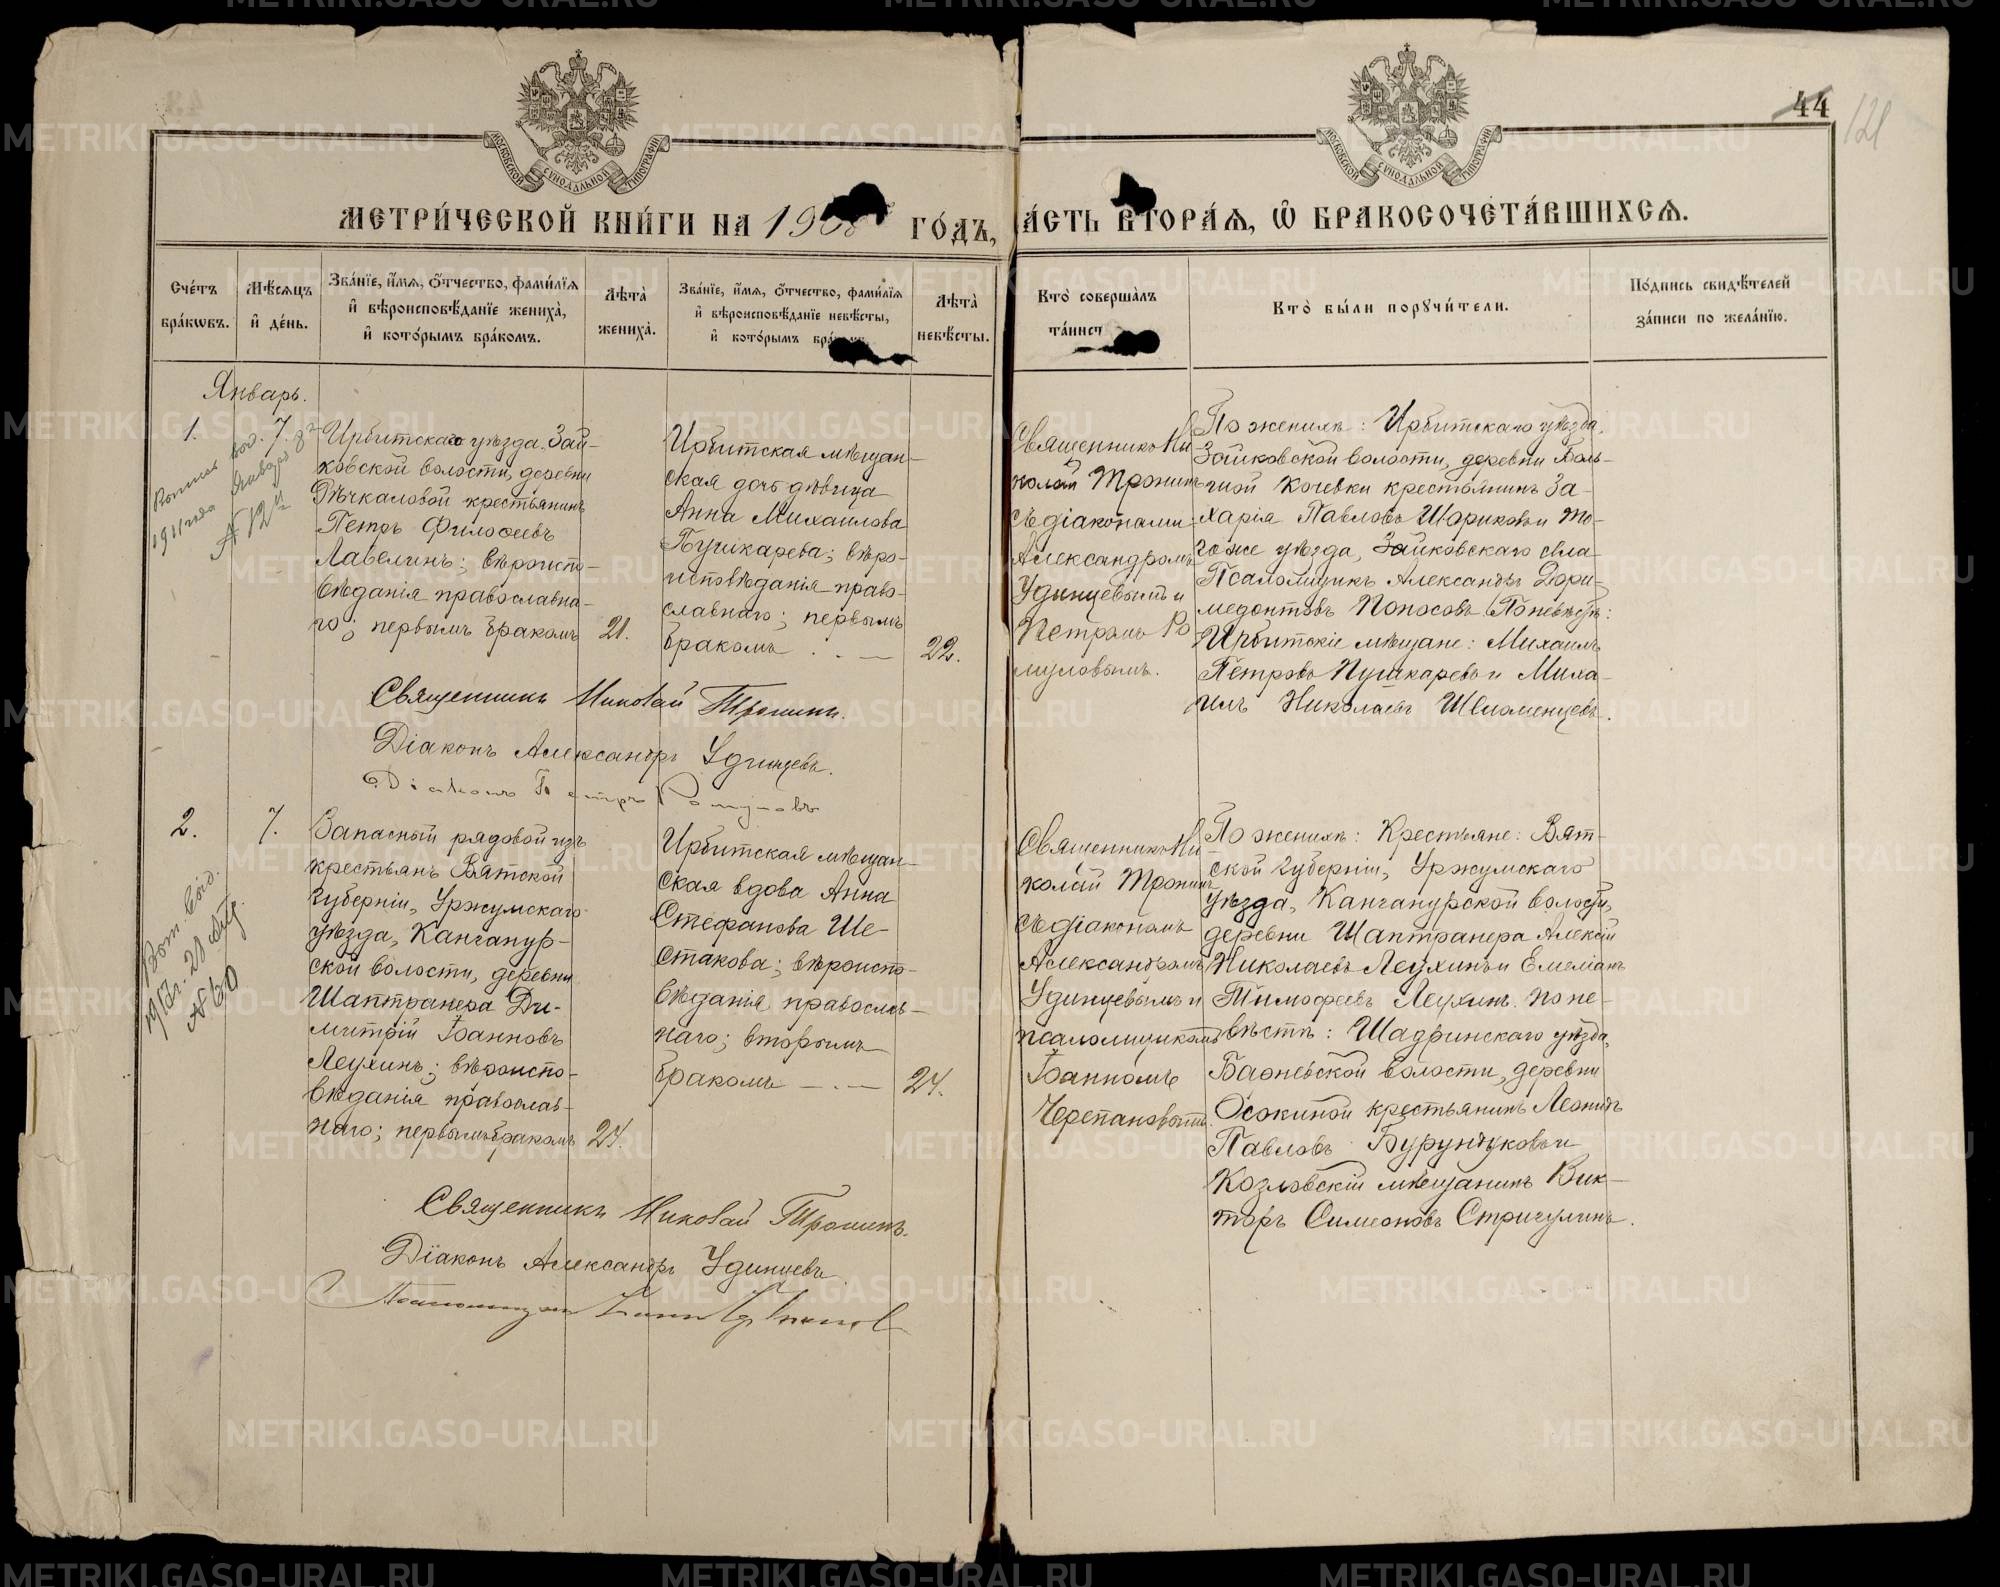 44
121
МОСКОВСКОЙ СѴНОДАЛЬНОЙ ТИПОГРАФІИ
МОСКОВСКОЙ СѴНОДАЛЬНОЙ ТИПОГРАФІИ
МЕТРИ́ЧЕСКОЙ КНИ́ГИ НА 190 ГО́ДЪ,
А́СТЬ ВТОРА́Ѧ, Ѽ БРАКОСОЧЕТА́ВШИХСѦ.
Сче́тъ бра́кѡвъ.
Мѣ́сѧцъ и҆ де́нь.
Зва́нїе, и҆́мѧ, ѻ҆́тчество, фами́лїѧ
и҆ вѣроисповѣ́данїе жениха̀,
и҆ кото́рымъ бра́комъ.
Лѣта̀ жениха̀.
Зва́нїе, и҆́мѧ, ѻ҆́тчество, фами́лїѧ
и҆ вѣроисповѣ́данїе невѣ́сты,
и҆ кото́рымъ бра́
Лѣта̀ невѣ́сты.
Кто̀ соверша́лъ
та́инст
Кто̀ бы́ли порꙋчи́тели.
По́дпись свидѣ́телей
за́писи по жела́нїю.
Январь.
1.
7.
1911 года
№ 12
Ирбитскаго уѣзда, Зай-
ковской волости, деревни
Рѣчкаловой крестьянинъ
Петръ Филоѳеевъ
Лавелинъ; вѣроиспо-
вѣданія православна-
го; первымъ бракомъ
21.
Ирбитская мѣщан-
ская дочь дѣвица
Анна Михаилова
Пушкарева; вѣро-
исповѣданія право-
славнаго; первымъ
бракомъ
22.
Священникъ Ни-
колай Тронинъ
съ діаконами
Александромъ
Удинцевымъ и
Петромъ Ро
муловымъ.
По женихѣ: Ирбитскаго уѣзда,
Зайковской волости, деревни Боль-
шой Кочевки крестьянинъ За-
харія Павловъ Шориковъ и то-
гоже уѣзда, Зайковскаго села
Псаломщикъ Александръ Дори-
медонтовъ Попосовъ. По невѣстѣ:
Ирбитскіе мѣщане: Михаилъ
Петровъ Пушкаревъ и Миха-
илъ Николаевъ
Священникъ Николай Тронинъ.
Діаконъ Александръ Удинцевъ.
Діаконъ Петръ Ромуловъ
2.
7.
№ 60
Запасный рядовой изъ
крестьянъ Вятской
губерніи, Уржумскаго
уѣзда, Канганур-
ской волости, деревни
Шаптранера Ди-
митрій Іоанновъ
Леухинъ; вѣроиспо-
вѣданія православ-
наго; первымъ бракомъ
24.
Ирбитская мѣщан-
ская вдова Анна
Стефанова Ше-
стакова; вѣроиспо-
вѣданія православ-
наго; вторымъ
бракомъ
24.
Священникъ Ни-
колай Тронинъ
съ діакономъ
Александромъ
Удинцевымъ и
псаломщикомъ
Іоанномъ
Черепановымъ.
По женихѣ: Крестьяне: Вят-
ской губерніи, Уржумскаго
уѣзда, Канганурской волости,
деревни Шаптранера Алексій
Николаевъ Леухинъ и Емеліанъ
Тимофеевъ Леухинъ. По не-
вѣстѣ: Шадринскаго уѣзда,
волости, деревни
Осокиной крестьянинъ Леонидъ
Павловъ Бурундуковъ и
Козловскій мѣщанинъ Вик-
торъ Симеоновъ Стригулинъ.
Священникъ Николай Тронинъ.
Діаконъ Александръ Удинцевъ.
METRIKI.GASO-URAL.RU